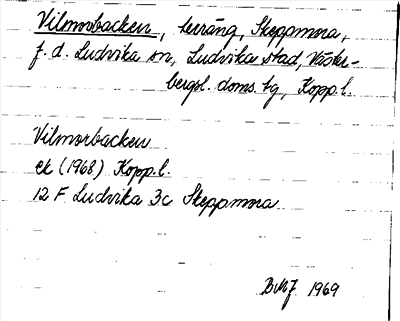 Vilmorbacken, terräng, Skeppmora,
f.d. Ludvika sn, Ludvika stad, Väster-
bergsl. doms. tg, Kopp. l.
Vilmorbacken
ek (1968) Kopp. l.
12 F Ludvika 3c Skeppmora
1969